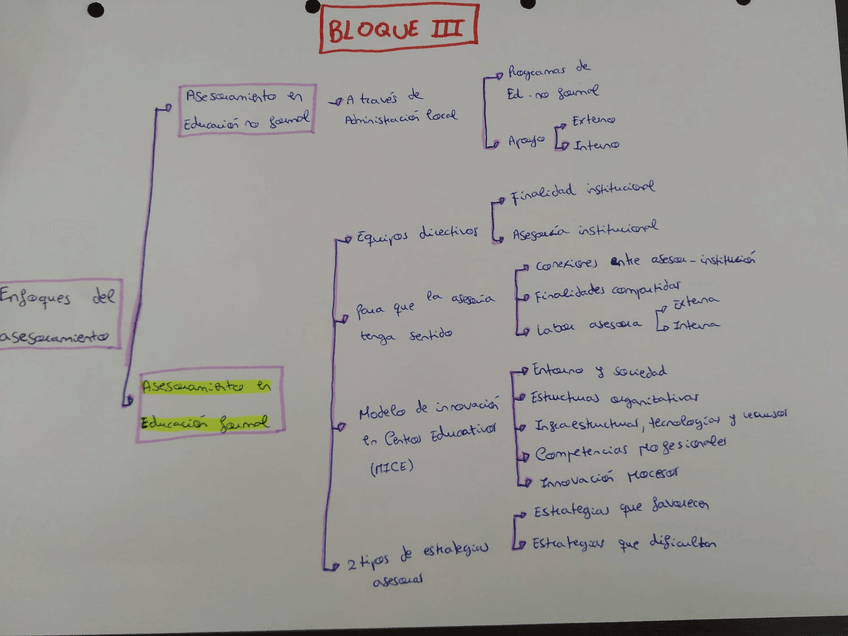 BLOQUE III
Asesoramiento en
Educación no formal
A través de
Administración local
Programas de
Ed. no formal
Apoyo
Externo
Interno
Enfoques del
asesoramiento
Asesoramiento en
Educación formal
Equipos directivos
Finalidad institucional
Asesoría institucional
Para que la asesoría
tenga sentido
Conexiones entre asesor-institución
Finalidades compartidas
Labor asesora
Externa
Interna
Modelo de innovación
en Centros Educativos
(MICE)
Entorno y sociedad
Estructuras organitativas
Infraestructura, tecnologías y recursos
Competencias profesionales
Innovación procesos
2 tipos de estrategias
asesoras
Estrategias que favorecen
Estrategias que dificultan